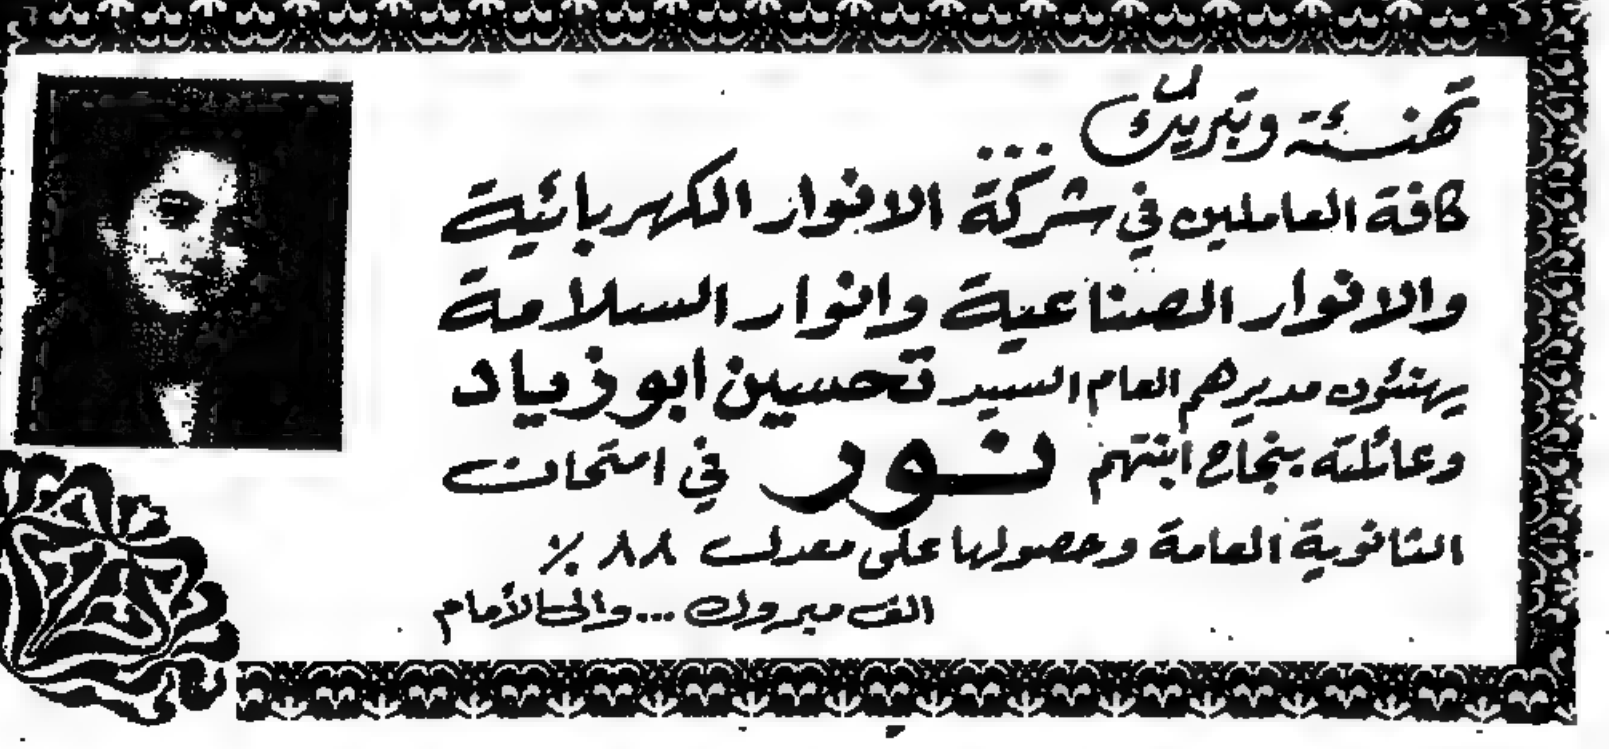 تهنئة وتبريك
...
كافة العاملين في شركة الانوار الكهربائية
والانوار الصناعية وانوار السلامة
يهنئون مديرهم العام السيد تحسين ابو زياد
وعائلته بنجاح ابنتهم نور في امتحان
الثانوية العامة وحصولها على معدل ٨٨ ٪
الف مبروك ... والى الأمام